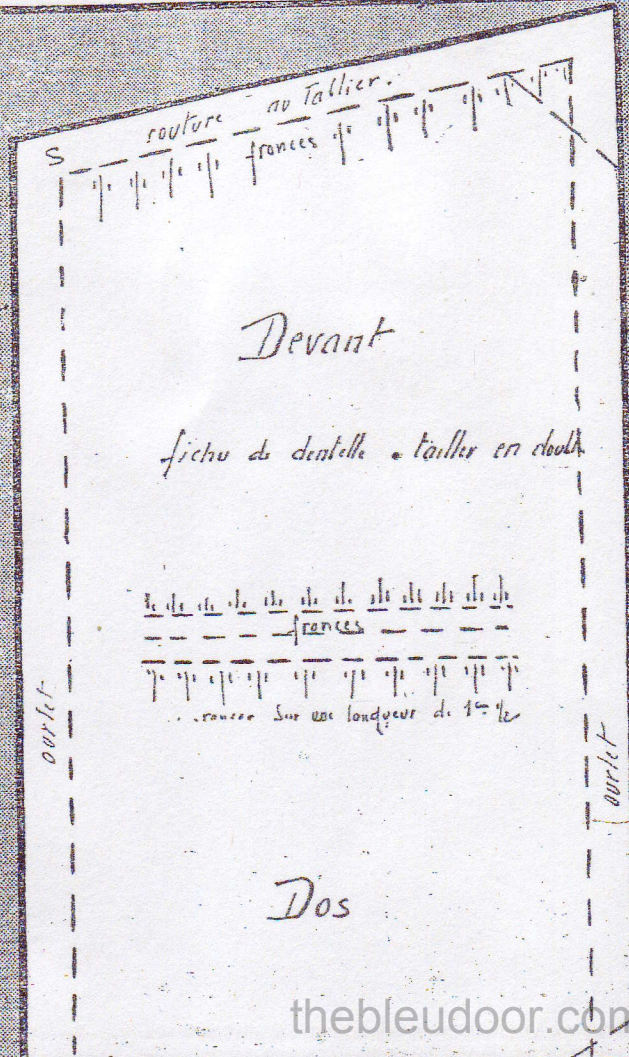 S couture au Tallier.
fronces
Devant
fichu de dentelle . tailler en doubl
fronces
Sur une longueur de 1 cm 1/2
ourlet
ourlet
Dos
thebleudoor.com